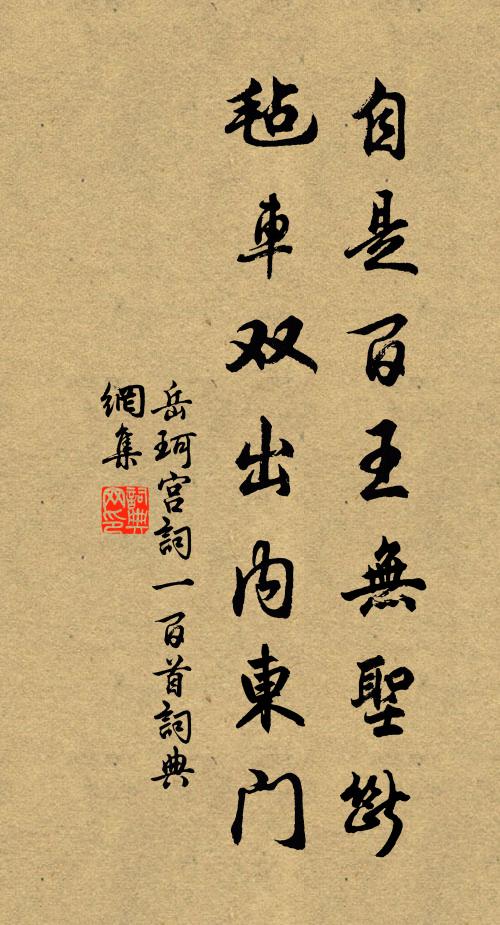 自是百王無聖斷
毡車双出内東门
岳珂宫詞一百首詞典
網集
詞典
网印